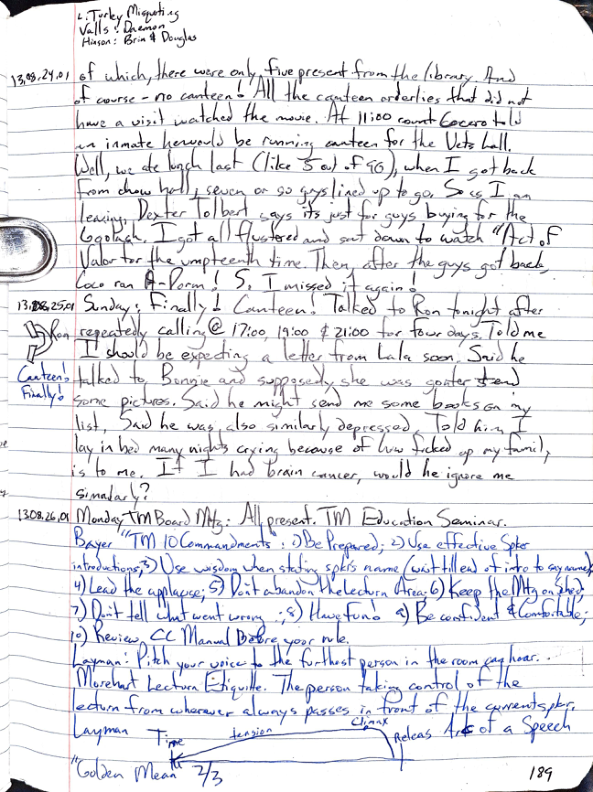 Turley Misquoting
Valls: Daemon
Hinson: Brin & Douglas
13.08.24.01 of which, there were only five present from the library. And
of course - no canteen! All the canteen orderlies that did not
have a visit watched the movie. At 11:00 count told
an inmate he would be running canteen for the Vets hall.
Well, we ate lunch last (like 5 out of 96), when I got back
from chow hall, seven or so guys lined up to go. So as I am
leaving, Dexter Tolbert says its just for guys buying for the
Goolash. I got all flustered and sat down to watch "Act of
Valor for the umpteenth time. Then, after the guys got back,
Coco ran A-Dorm! So, I missed it again!
13.08.25.01 Sunday: Finally! Canteen! Talked to Ron tonight after
Ron repeatedly calling @ 17:00, 19:00 & 21:00 for four days. Told me
I should be expecting a letter from Lala soon. Said he
Canteen! talked to Bonnie and supposedly she was send
Finally! some pictures. Said he might send me some books on my
list. Said he was also similarly depressed. Told him I
lay in bed many nights crying because of how fucked up my family
is to me. If I had brain cancer, would he ignore me
simadarly?
13.08.26.01 Monday TM Board Mtg: All present. TM Education Seminar.
Bayer "TM 10 Commandments: 1) Be Prepared; 2) Use effective Spkr
introductions; 3) Use wisdom when stating spkr's name (wait till end of intro to say name);
4) Lead the applause; 5) Don't abandon the Lecturn Area; 6) Keep the Mtg on sked;
7) Don't tell what went wrong; 8) Have fun! 9) Be confident & Comfortable;
10) Review CC Manual Before your role.
Layman: Pitch your voice to the furthest person in the room can hear..
Morehart Lecturn Etiquitte. The person taking control of the
lecturn from wherever always passes in front of the current spkr.
Layman Time tension Climax Releas Arc of a Speech
"Golden Mean" 2/3
189